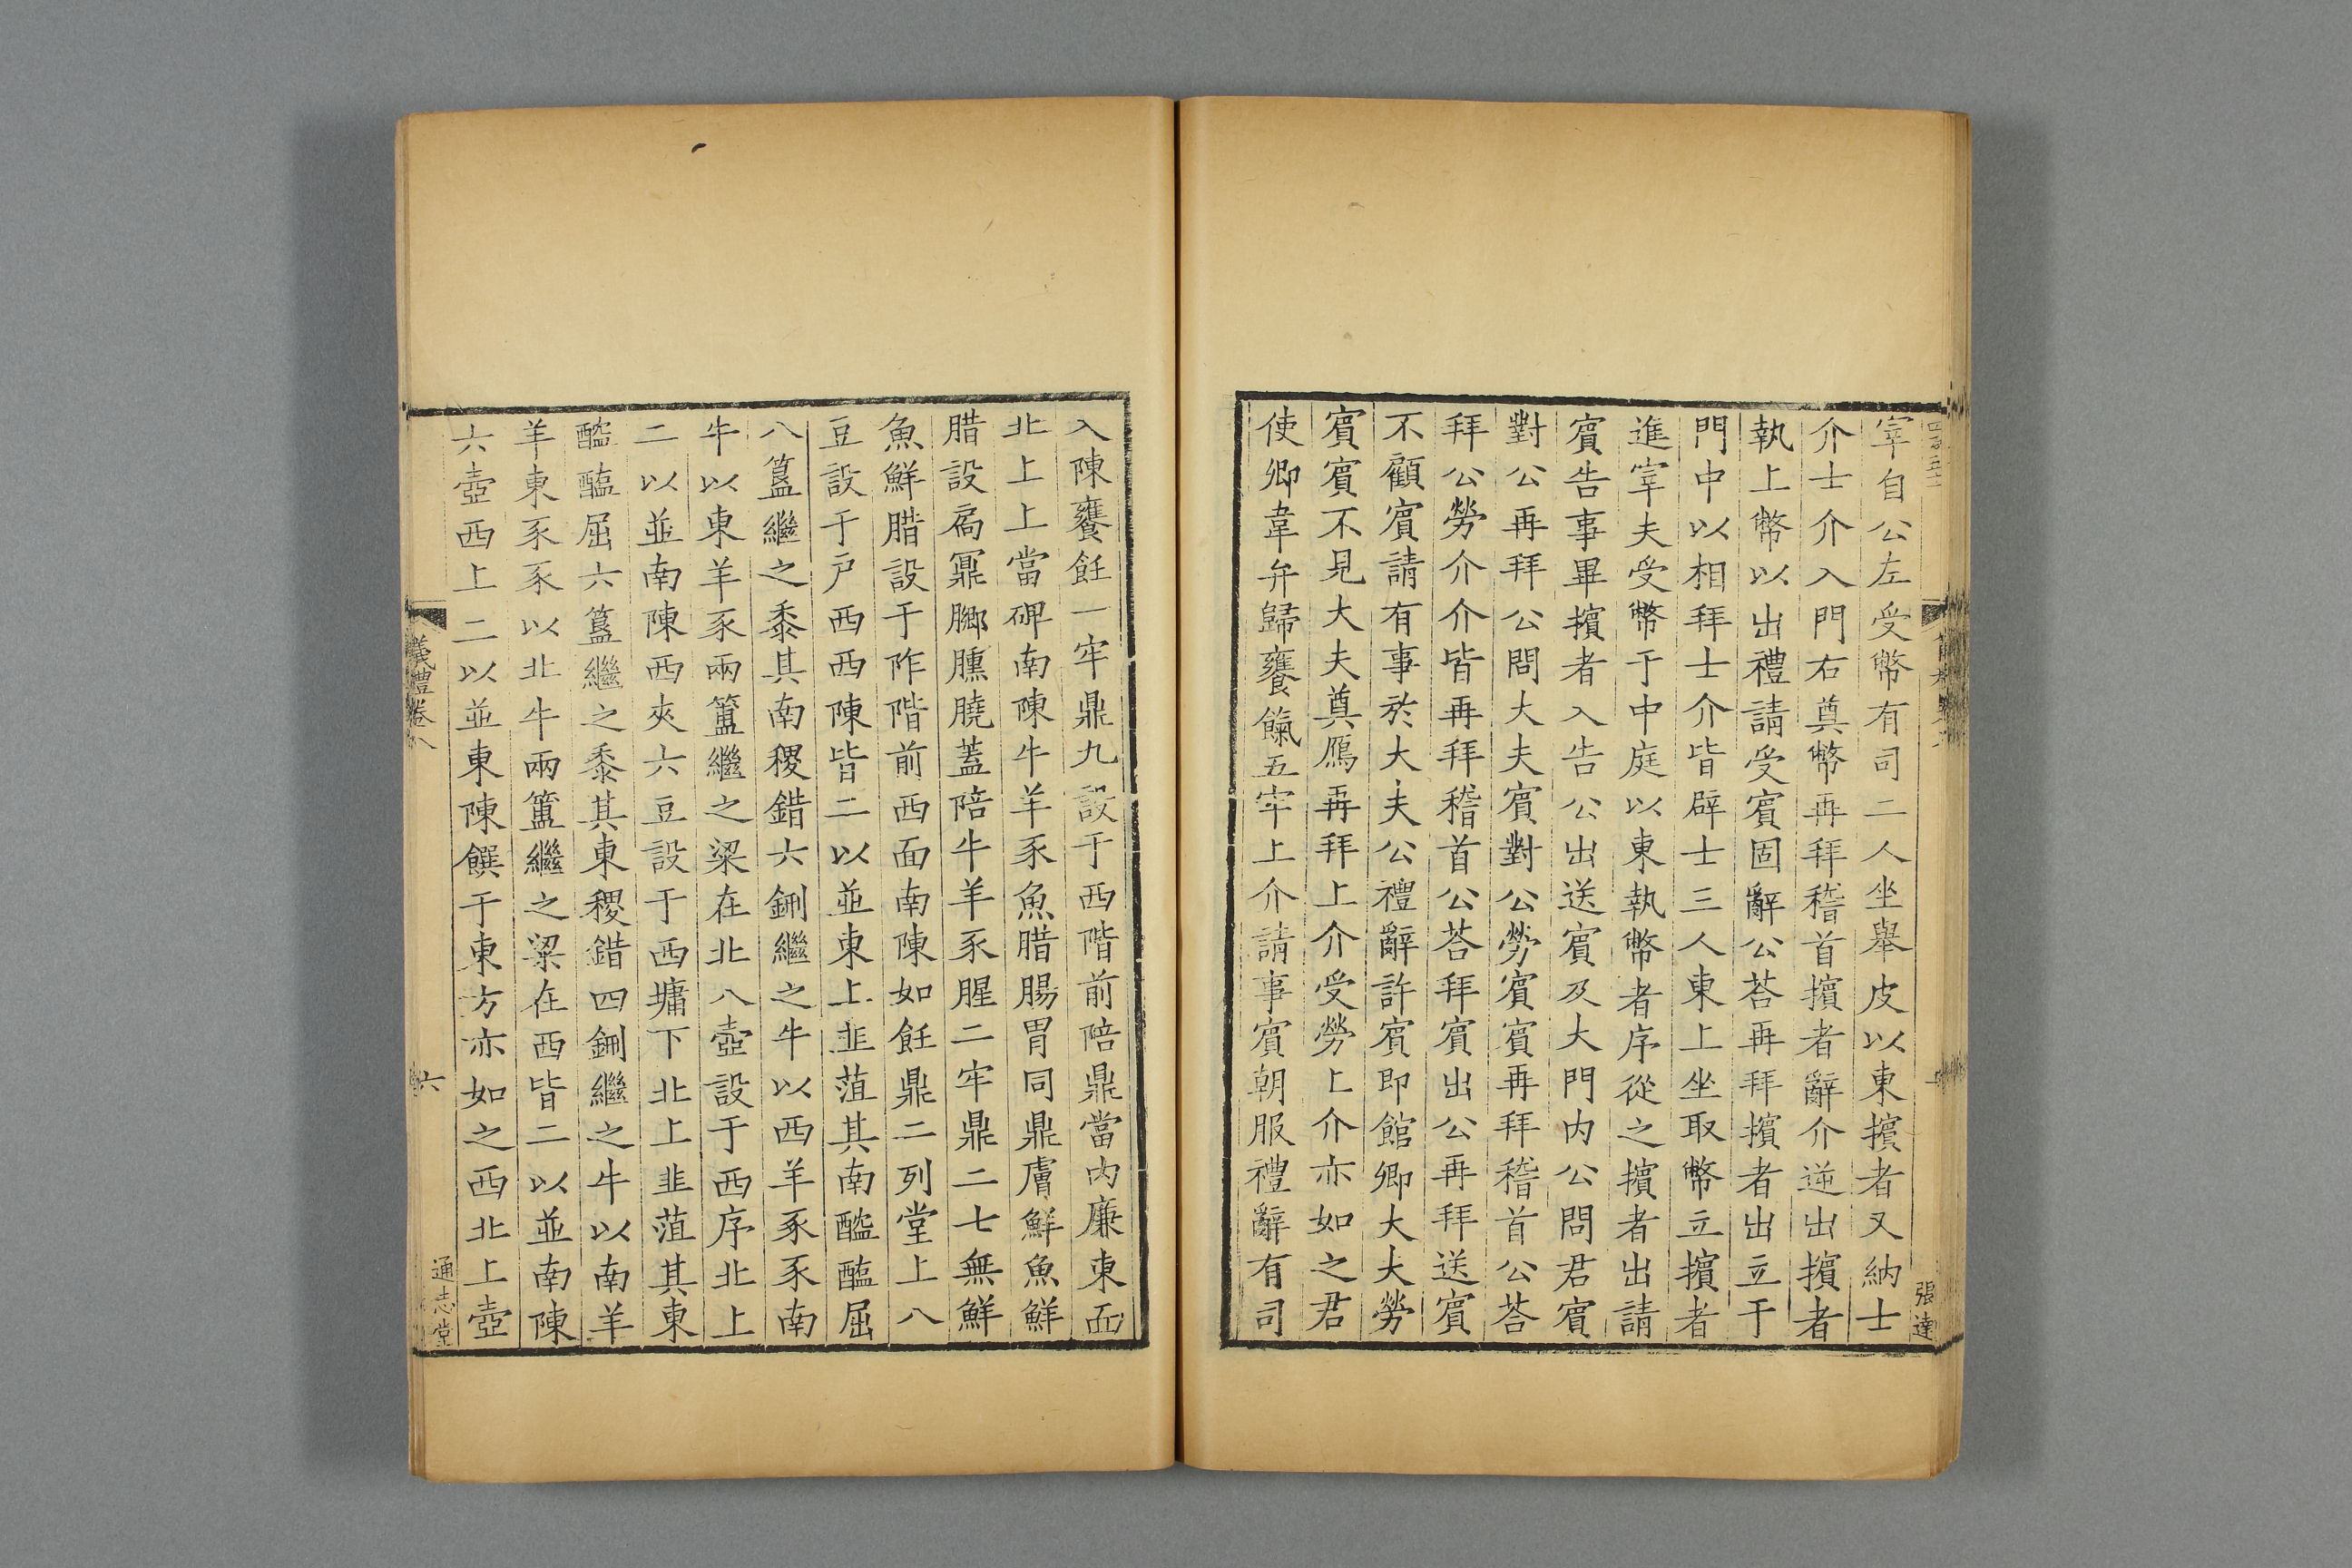 宰自公左受幣有司二人坐舉皮以東擯者又納士
介士介入門右奠幣再拜稽首擯者辭介逆出擯者
執上幣以出禮請受賓固辭公荅再拜擯者出立于
門中以相拜士介皆辟士三人東上坐取幣立擯者
進宰夫受幣于中庭以東執幣者序從之擯者出請
賓告事畢擯者入告公出送賓及大門内公問君賓
對公再拜公問大夫賓對公勞賓賓再拜稽首公荅
拜公勞介介皆再拜稽首公荅拜賓出公再拜送賓
不顧賓請有事於大夫公禮辭許賓即館卿大夫勞
賓賓不見大夫奠鴈再拜上介受勞上介亦如之君
使卿韋弁歸饔餼五牢上介請事賓朝服禮辭有司
張達
入陳饔飪一牢鼎九設于西階前陪鼎當内廉東面
北上上當碑南陳牛羊豕魚腊腸胃同鼎膚鮮魚鮮
腊設扃鼏膷臐膮蓋陪牛羊豕腥二牢鼎二七無鮮
魚鮮腊設于阼階前西面南陳如飪鼎二列堂上八
豆設于戶西西陳皆二以並東上韭菹其南醓醢屈
八簋繼之黍其南稷錯六鉶繼之牛以西羊豕豕南
牛以東羊豕兩簠繼之粱在北八壺設于西序北上
二以並南陳西夾六豆設于西墉下北上韭菹其東
醓醢屈六簋繼之黍其東稷錯四鉶繼之牛以南羊
羊東豕豕以北牛兩簠繼之粱在西皆二以並南陳
六壺西上二以並東陳饌于東方亦如之西北上壺
儀禮卷八
六
通志堂